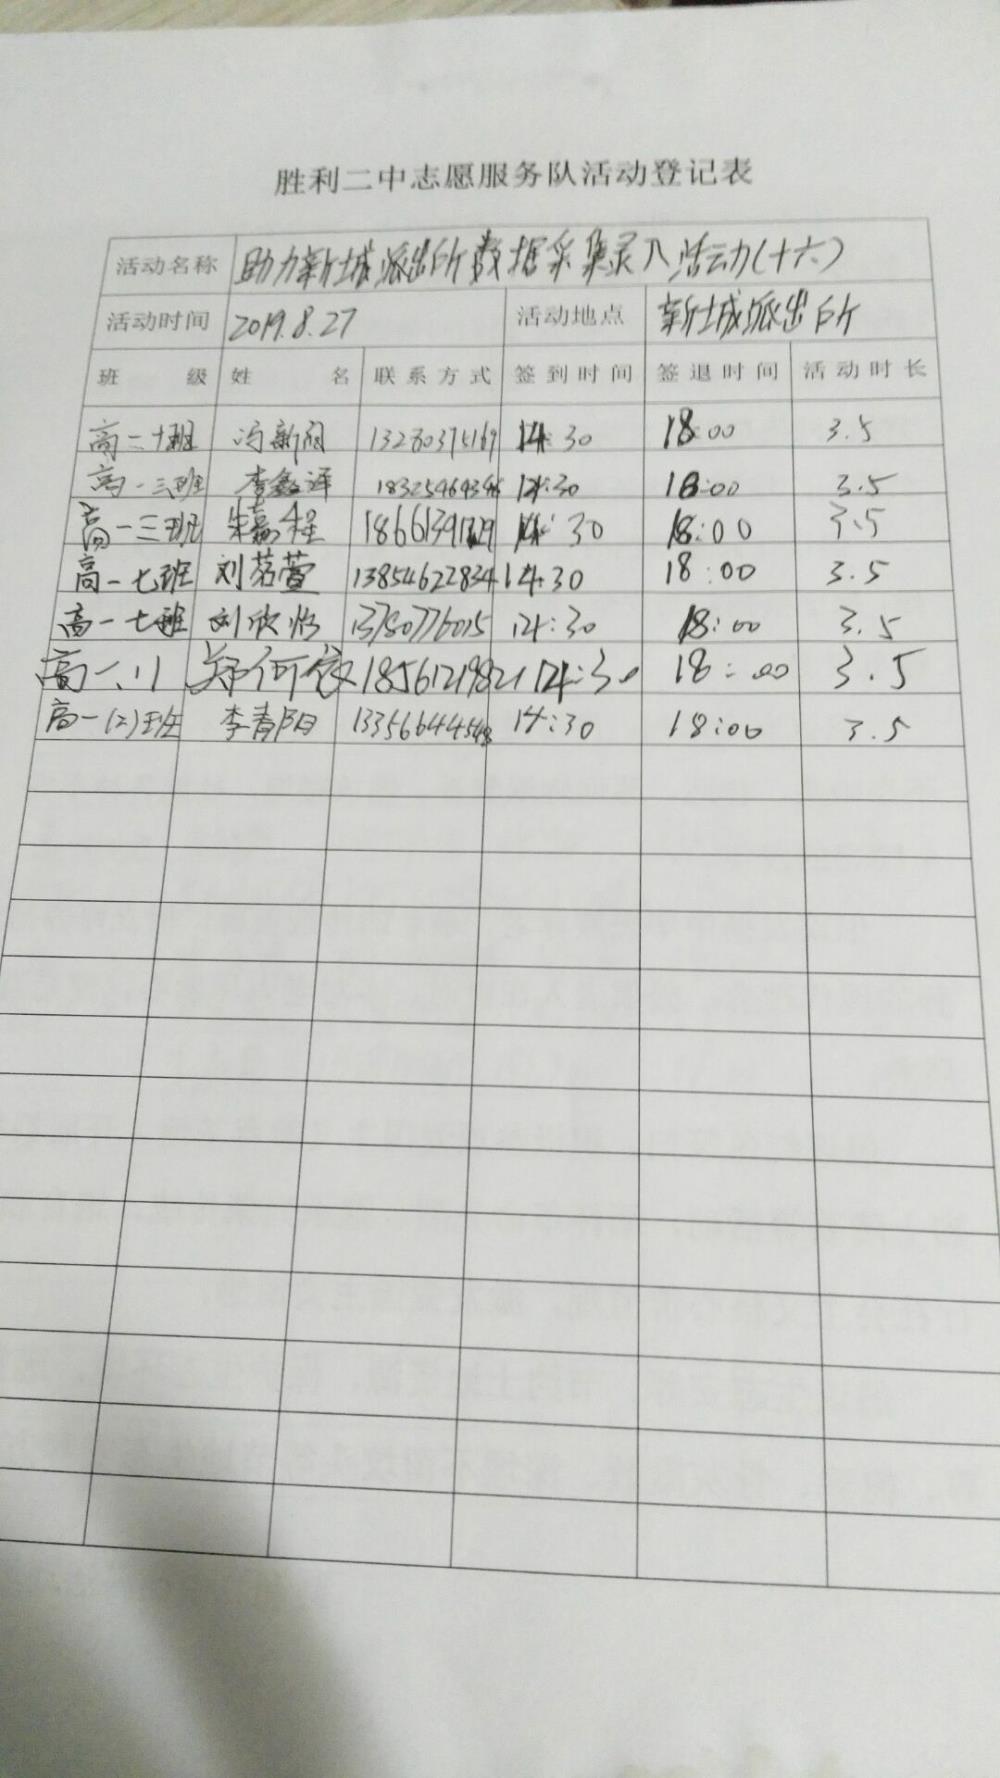 胜利二中志愿服务队活动登记表
活动名称 助力新城派出所数据采集录入活动(十六)
活动时间 2019.8.27 活动地点 新城派出所
班级 姓名 联系方式 签到时间 签退时间 活动时长
高二十班 冯新阁 13280375169 14:30 18:00 3.5
高一三班 李鑫泽 14:30 18:00 3.5
高一三班 朱嘉程 14:30 18:00 3.5
高一七班 刘茗萱 13854622834 14:30 18:00 3.5
高一七班 刘欣怡 13780776015 14:30 18:00 3.5
高一.11 郑何依 18561219821 14:30 18:00 3.5
高一(2)班 李青阳 13356644548 14:30 18:00 3.5